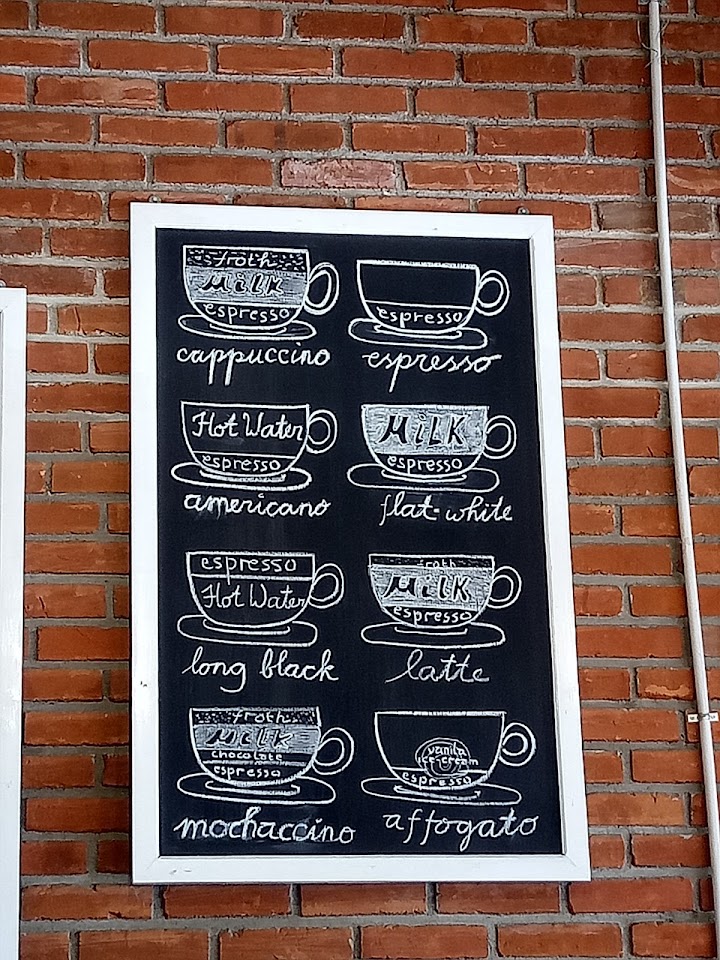 froth
MiLK
espresso
cappuccino
espresso
espresso
Hot Water
espresso
americano
MiLK
espresso
flat-white
espresso
Hot Water
long black
froth
MiLK
espresso
latte
froth
MiLK
chocolate
espresso
mochaccino
vanila
ice-cream
espresso
affogato